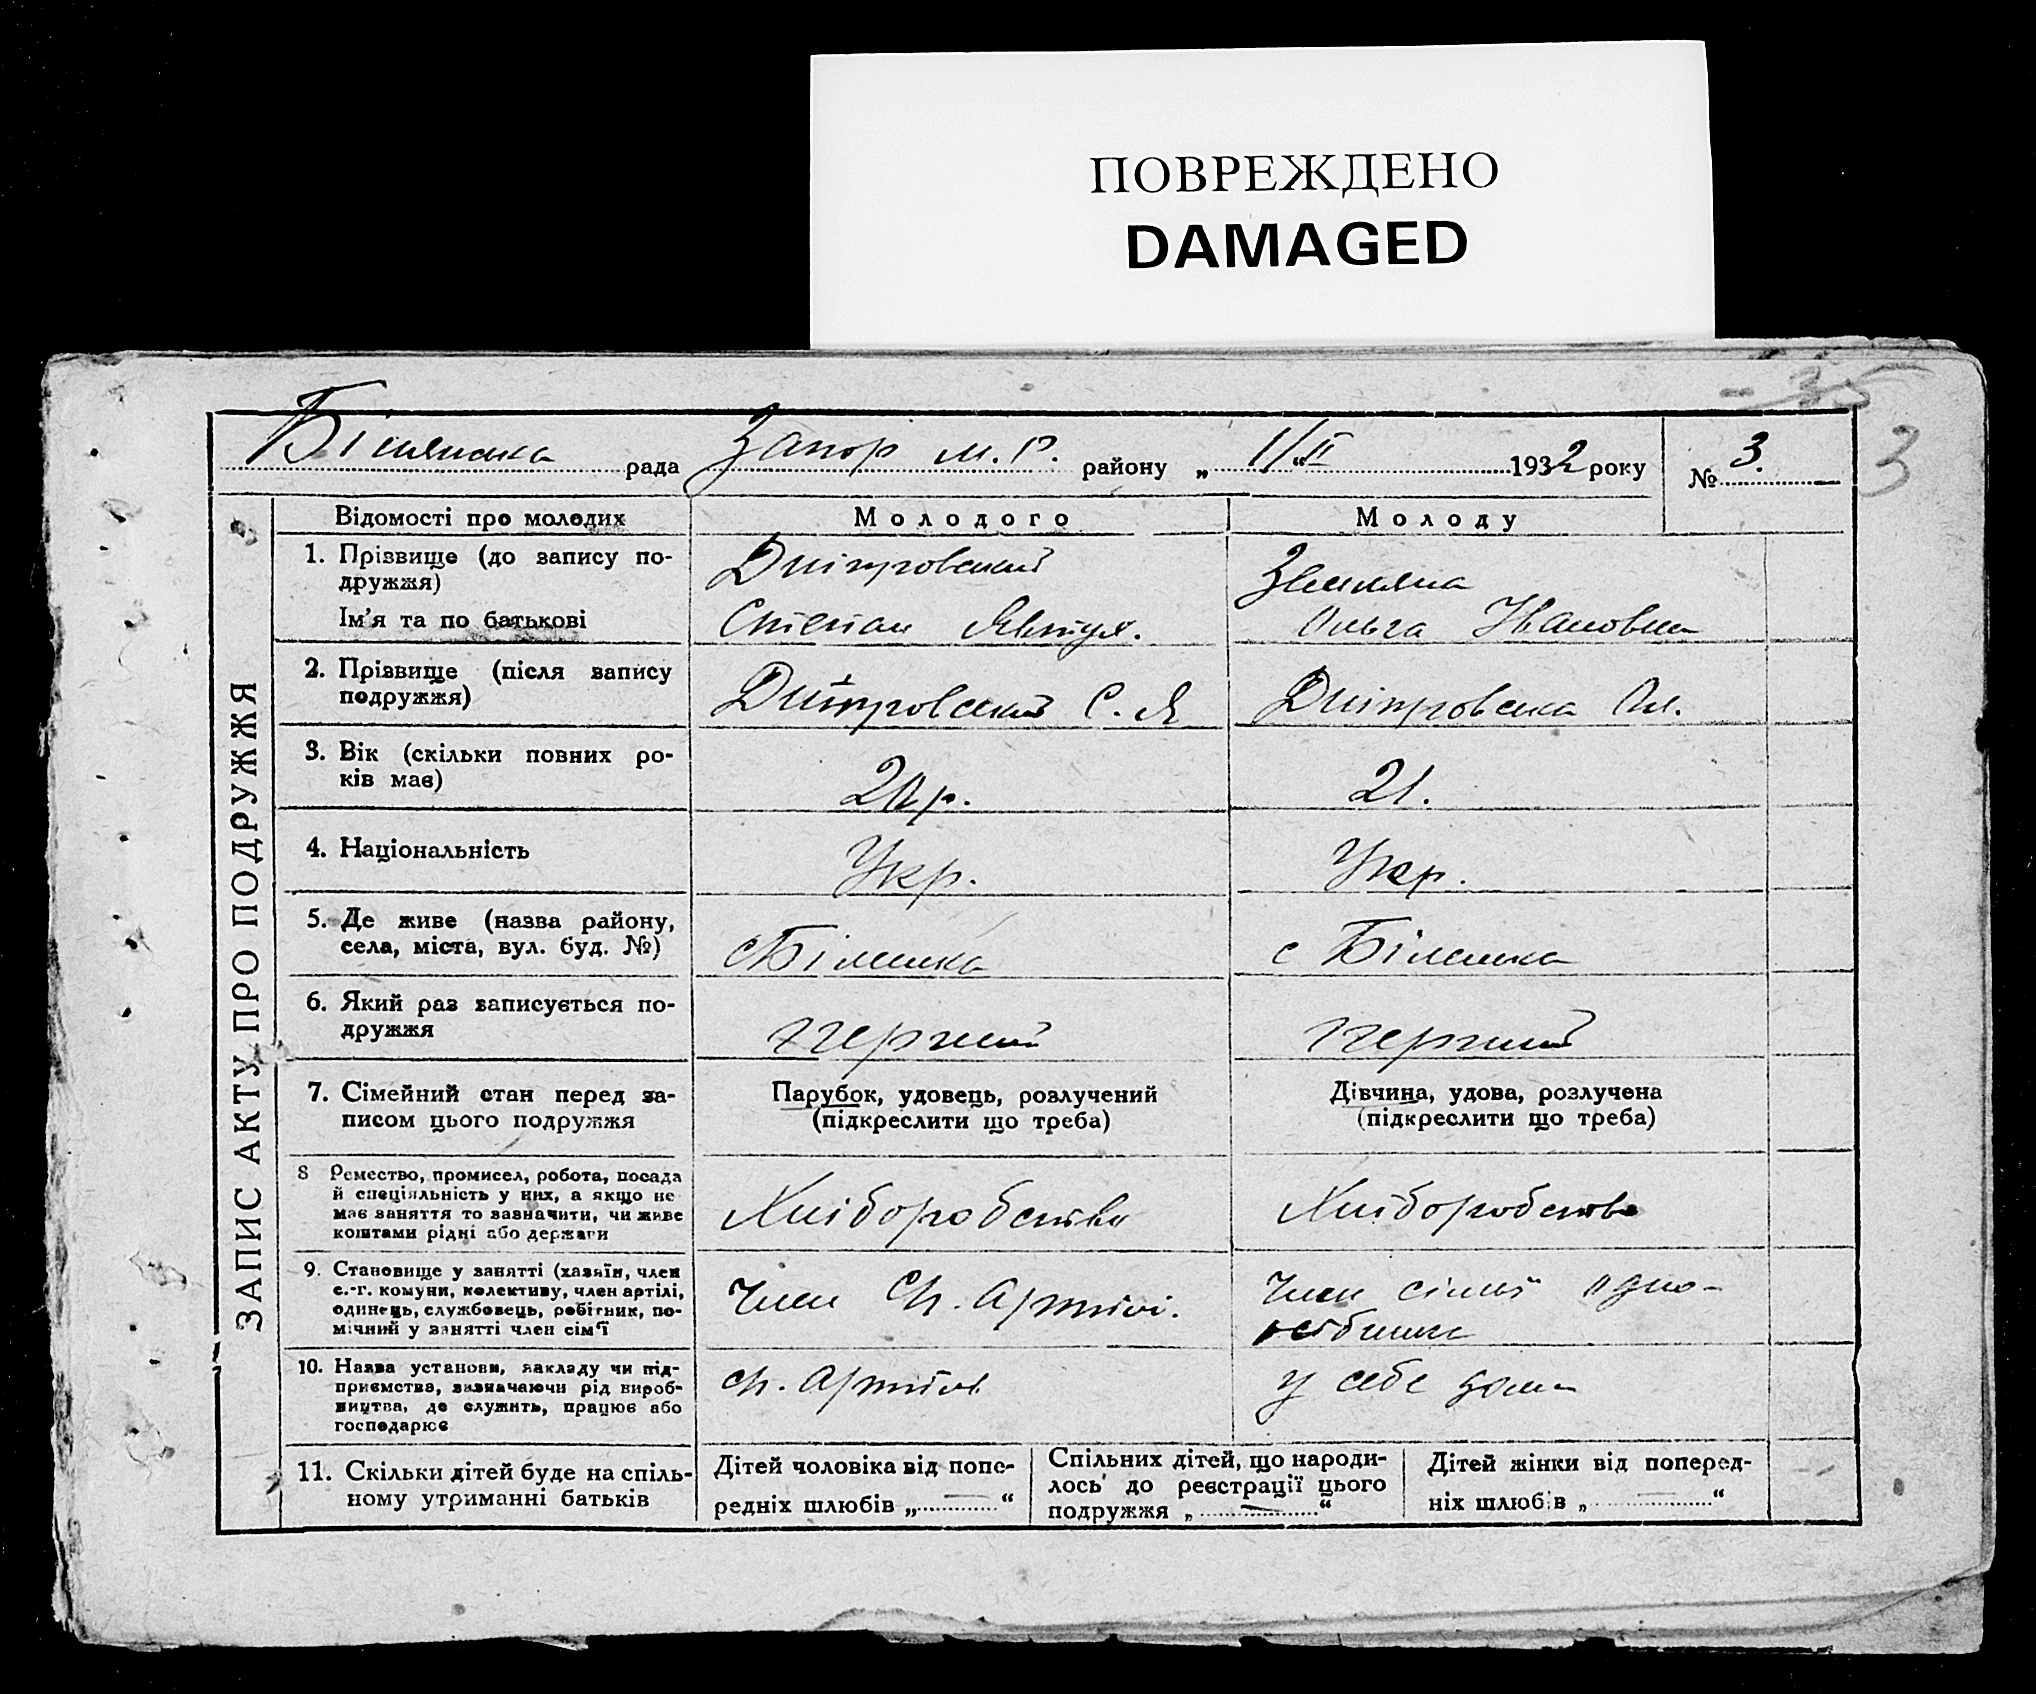 ПОВРЕЖДЕНО
DAMAGED
35
3
рада Запор м. Р. району „ 1/II 1932 року № 3.
ЗАПИС АКТУ ПРО ПОДРУЖЖЯ
Відомості про молодих
Молодого
Молоду
1. Прізвище (до запису по-
дружжя)
Ім'я та по батькові
Дніпровський
Степан Явтух.
Ольга Івановна
2. Прізвище (після запису
подружжя)
Дніпровський С. Я
Дніпровська Ол.
3. Вік (скільки повних ро-
ків має)
20 р.
21.
4. Національність
Укр.
Укр.
5. Де живе (назва району,
села, міста, вул. буд. №)
с Біленька
с Біленька
6. Який раз записується по-
дружжя
перший
перший
7. Сімейний стан перед за-
писом цього подружжя
Парубок, удовець, розлучений
(підкреслити що треба)
Дівчина, удова, розлучена
(підкреслити що треба)
8 Ремество, промисел, робота, посада
й спеціяльність у них, а якщо не
має заняття то зазначити, чи живе
коштами рідні або держави
Хліборобство
Хліборобство
9. Становище у занятті (хазяїн, член
с.-г. комуни, колективу, член артілі,
одинець, службовець, робітник, по-
мічний у занятті член сім'ї
Член Сп. Артілі.
Член сімї одно-
осібника
10. Назва установи, закладу чи під-
приємства, зазначаючи рід вироб-
ництва, де служить, працює або
господарює
сп. Артіль
у себе дома
11. Скільки дітей буде на спіль-
ному утриманні батьків
Дітей чоловіка від попе-
редніх шлюбів „ — “
Спільних дітей, що народи-
лось до реєстрації цього
подружжя „ — “
Дітей жінки від поперед-
ніх шлюбів „ — “